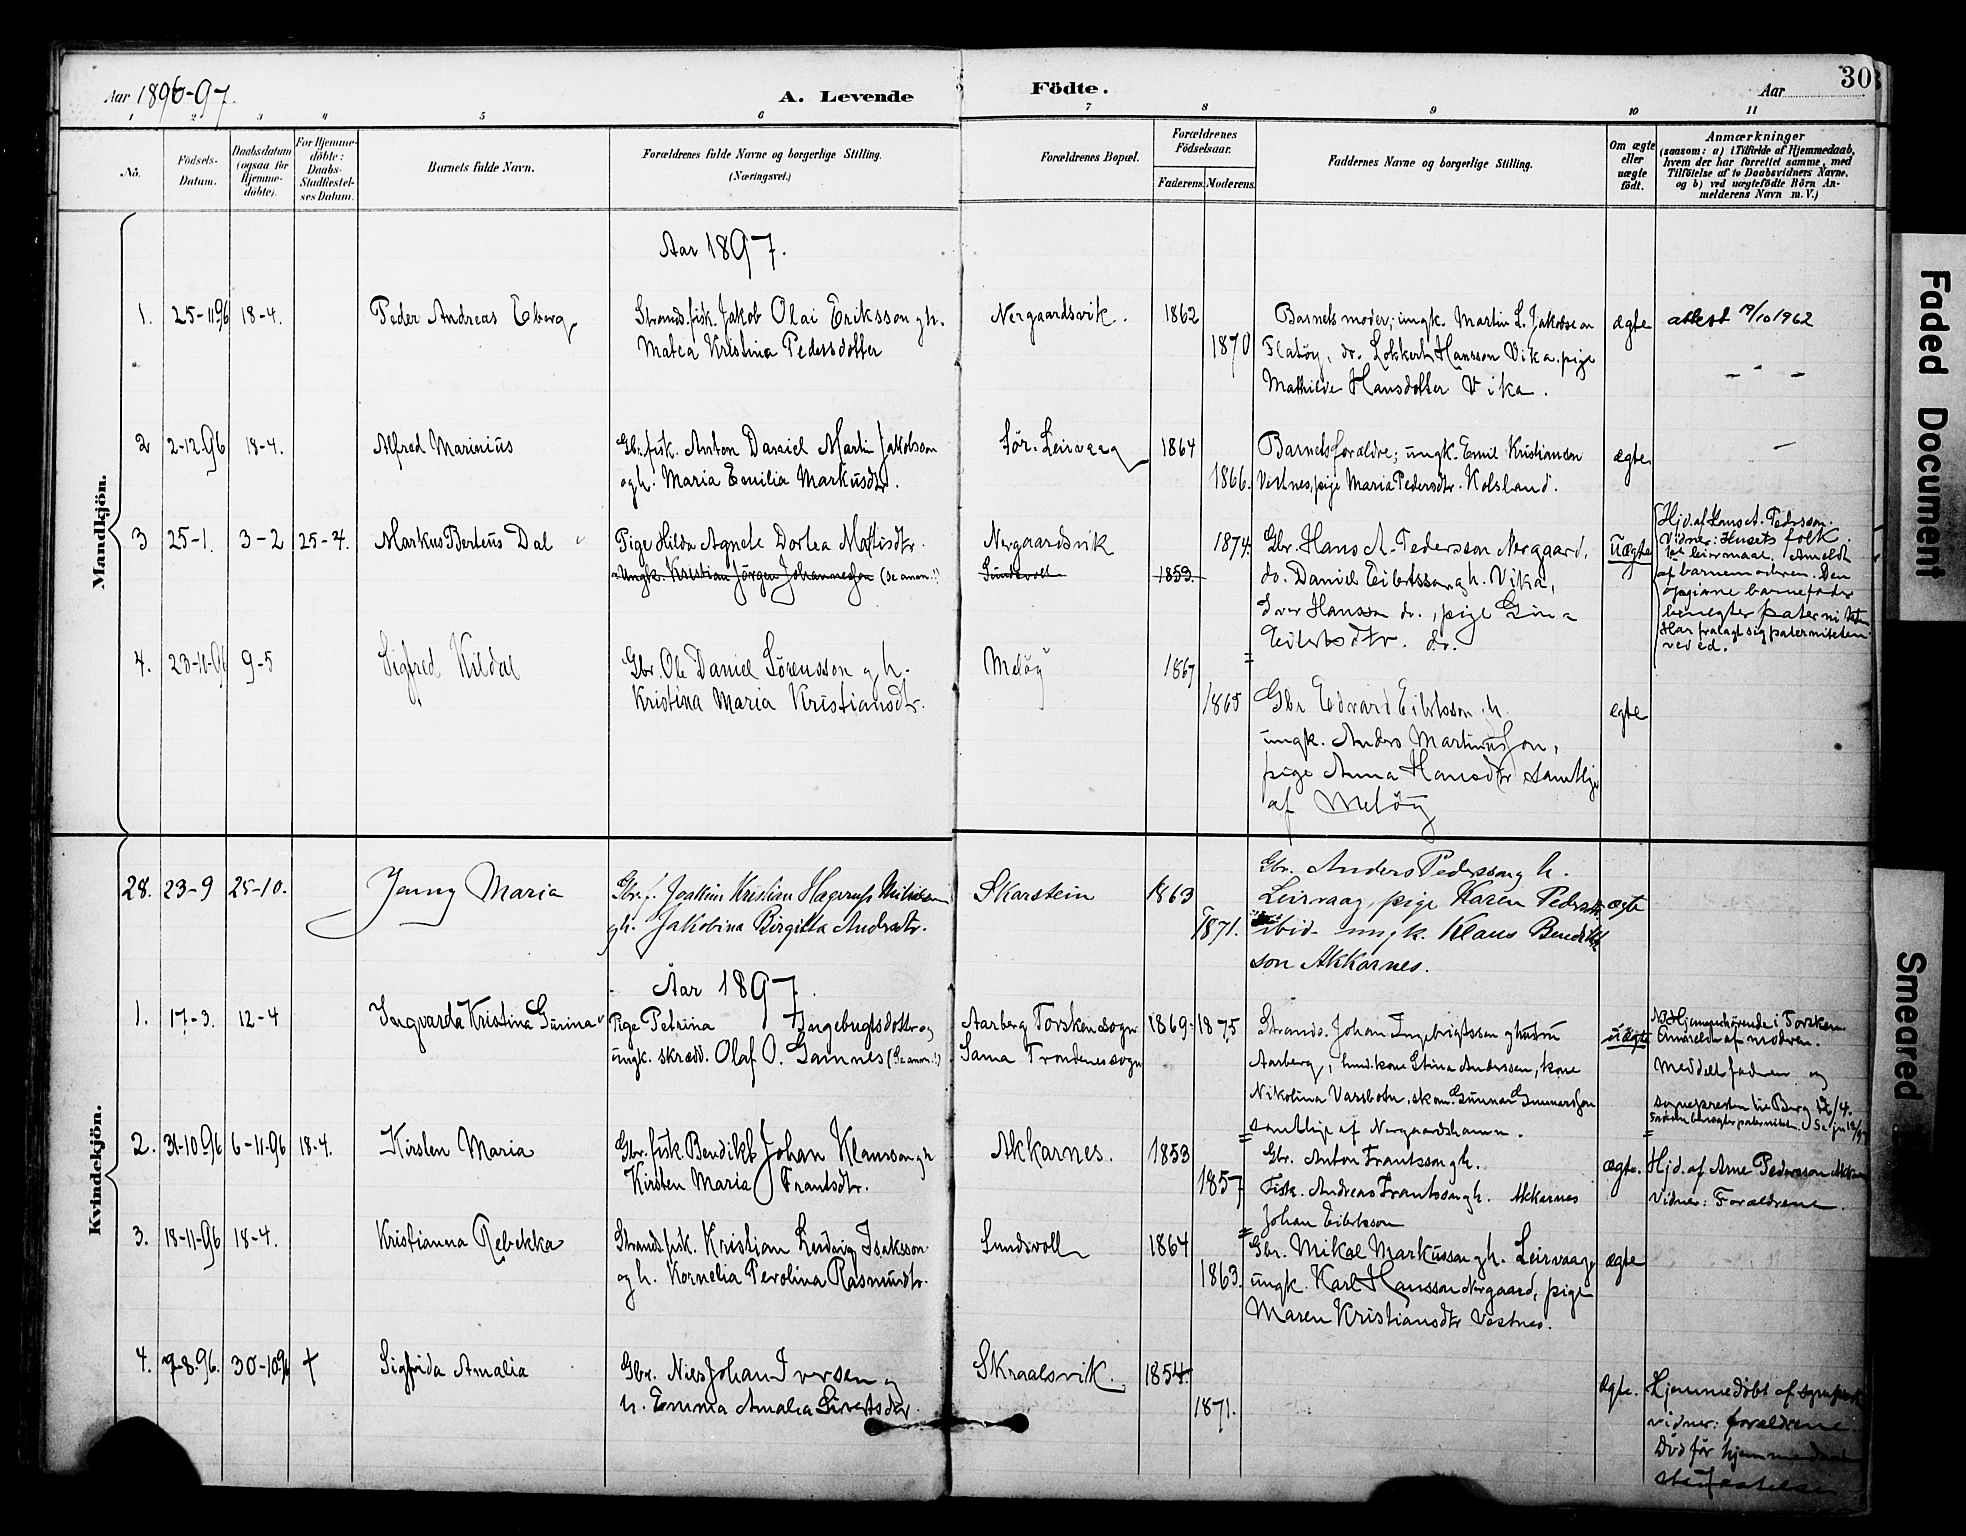 Aar 1896-97.
A. Levende Fødte.
Aar
30
1 2 3 4 5 6 7 8 9 10 11
No.
Fødsels-Datum.
Daabsdatum (ogsaa for Hjemme-døbte).
For Hjemme-døbte: Daabs-Stadfæstel-ses Datum.
Barnets fulde Navn.
Forældrenes fulde Navne og borgerlige Stilling.
(Næringsvei.)
Forældrenes Bopæl.
Forældrenes Fødselsaar.
Faderens. Moderens.
Faddernes Navne og borgerlige Stilling.
Om ægte eller uægte født.
Anmærkninger
(saasom: a) i Tilfælde af Hjemmedaab, hvem der har forrettet samme, med Tilføielse af to Daabsvidners Navne, og b) ved uægtefødte Børn An-melderens Navn m. V.)
Mandkjön.
Aar 1897.
1. 25-11 96 18-4. Peder Andreas Eberg
Strands.fisk. Jakob Olai Eriksson gh.
Matea Kristina Pedersdotter
Nergaardsvik. 1862 1870
Barnets moder; ungk. Martin L. Jakobsson
Flatöy, do. Lokkert Hansson Vika. pige
Mathilde Hansdotter Vika.
ægte
attest 17/10 1962
2 2-12.96 18-4. Alfred Marinius
Gbr. fisk. Anton Daniel Martin Jakobson
og h. Maria Emilia Markusdtr.
Sör. Leirvaag 1864 1866.
Barnets forældre; ungk. Emil Kristiansen
Vestnes, pige Maria Pedersdtr. Kolsland.
ægte.
3 25-1. 3-2 25-4. Markus Berteus Dal
Pige Hilda Agnete Dortea Mattisdtr.
Ungk. Kristian Jörgen Johannesson (Se anm.!)
Nergaardsvik
Sundsvoll 1853. 1874.
Gbr. Hans A. Pedersson Nergaard,
do. Daniel Eilertsson gh. Vika,
Iver Hansson do., pige Gina
Eilertsdtr. do.
Uægte
Hjd. af Hans A. Pedersson.
Vidner: Husets folk.
Anmeldt
af barnemoderen. Den
opgivne barnefader
benegter paterniteten
Har fralagt sig paterniteten
ved ed.
4. 23-11-96 9-5 Sigfred Kildal
Gbr. Ole Daniel Sörensson g h.
Kristina Maria Kristiansdtr.
Melöy 1867 1865
Gbr Edvard Eilertsson h.
ungk. Anders Martinusson,
pige Anna Hansdtr samtlige
af Melöy
ægte
Kvindekjön.
28. 23-9 25-10. Jenny Maria
Gbr. f. Joakim Kristian Hagerup
gh. Jakobina Birgitta Andrsdtr.
Skarstein 1863 1871.
Gbr. Anders Pedersson g h.
Leirvaag, pige Karen Pedrsdtr.
ibid. ungk. Klaus Benedikt
son Akkarnes.
ægte
Aar 1897.
1. 17-3. 12-4 Ingvarda Kristina Gurina
Pige Petrina Ingebrigtsdotter og
ungk. skrædd. Olaf O. Gamnes (Se anm.!)
Aarberg Torsken sogn
Sama Trondenes sogn
1869 1875
Strands. Johan Ingebrigtssen g hustru
Aarberg, hmd. kone Stina Anderssen, kone
Nikolina Varsbotn, skom. Gunnar Gunnarsson
samtlige af Nergaardshamn.
uægte
NB Hjemmehørende i Torsken.
Anmeldt af moderen.
Meddelt faderen og
sognepresten til Berg 12/4.
Faderen benegter paternitet.
2. 31-10 96 6-11-96 18-4. Kirsten Maria
Gbr. fisk Bendikt Johan Klausson gh
Kirsten Maria Frantsdtr.
Akkarnes. 1853 1857
Gbr. Anton Frantsson gh.
Fisk. Andreas Frantsson gh. Akkarnes
Johan Eilertsson
ægte.
Hjd. af Arne Pedersson Akkarnes
Vidner: Forældrene.
3. 18-11-96 18-4. Kristianna Rebekka
Strands.fisk. Kristian Ludvig Isaksson
og h. Kornelia Perolina Rasmusdtr.
Sundsvoll 1864 1863.
Gbr. Mikal Markusson gh. Leirvaag,
ungk. Karl Hansson Nergaard, pige
Maren Kristiansdtr Vestnes.
ægte
4. 7-8-96. 30-10 96 † Sigfrida Amalia
Gbr. Nils Johan Iversen og
h. Emma Amalia Sivertsdtr.
Skraalsvik. 1854. 1871.
Ægte.
Hjemmedøbt af sognepr.
vidner: forældrene.
Död för hjemmedaab
stadfæstelse
Faded Document
Smeared